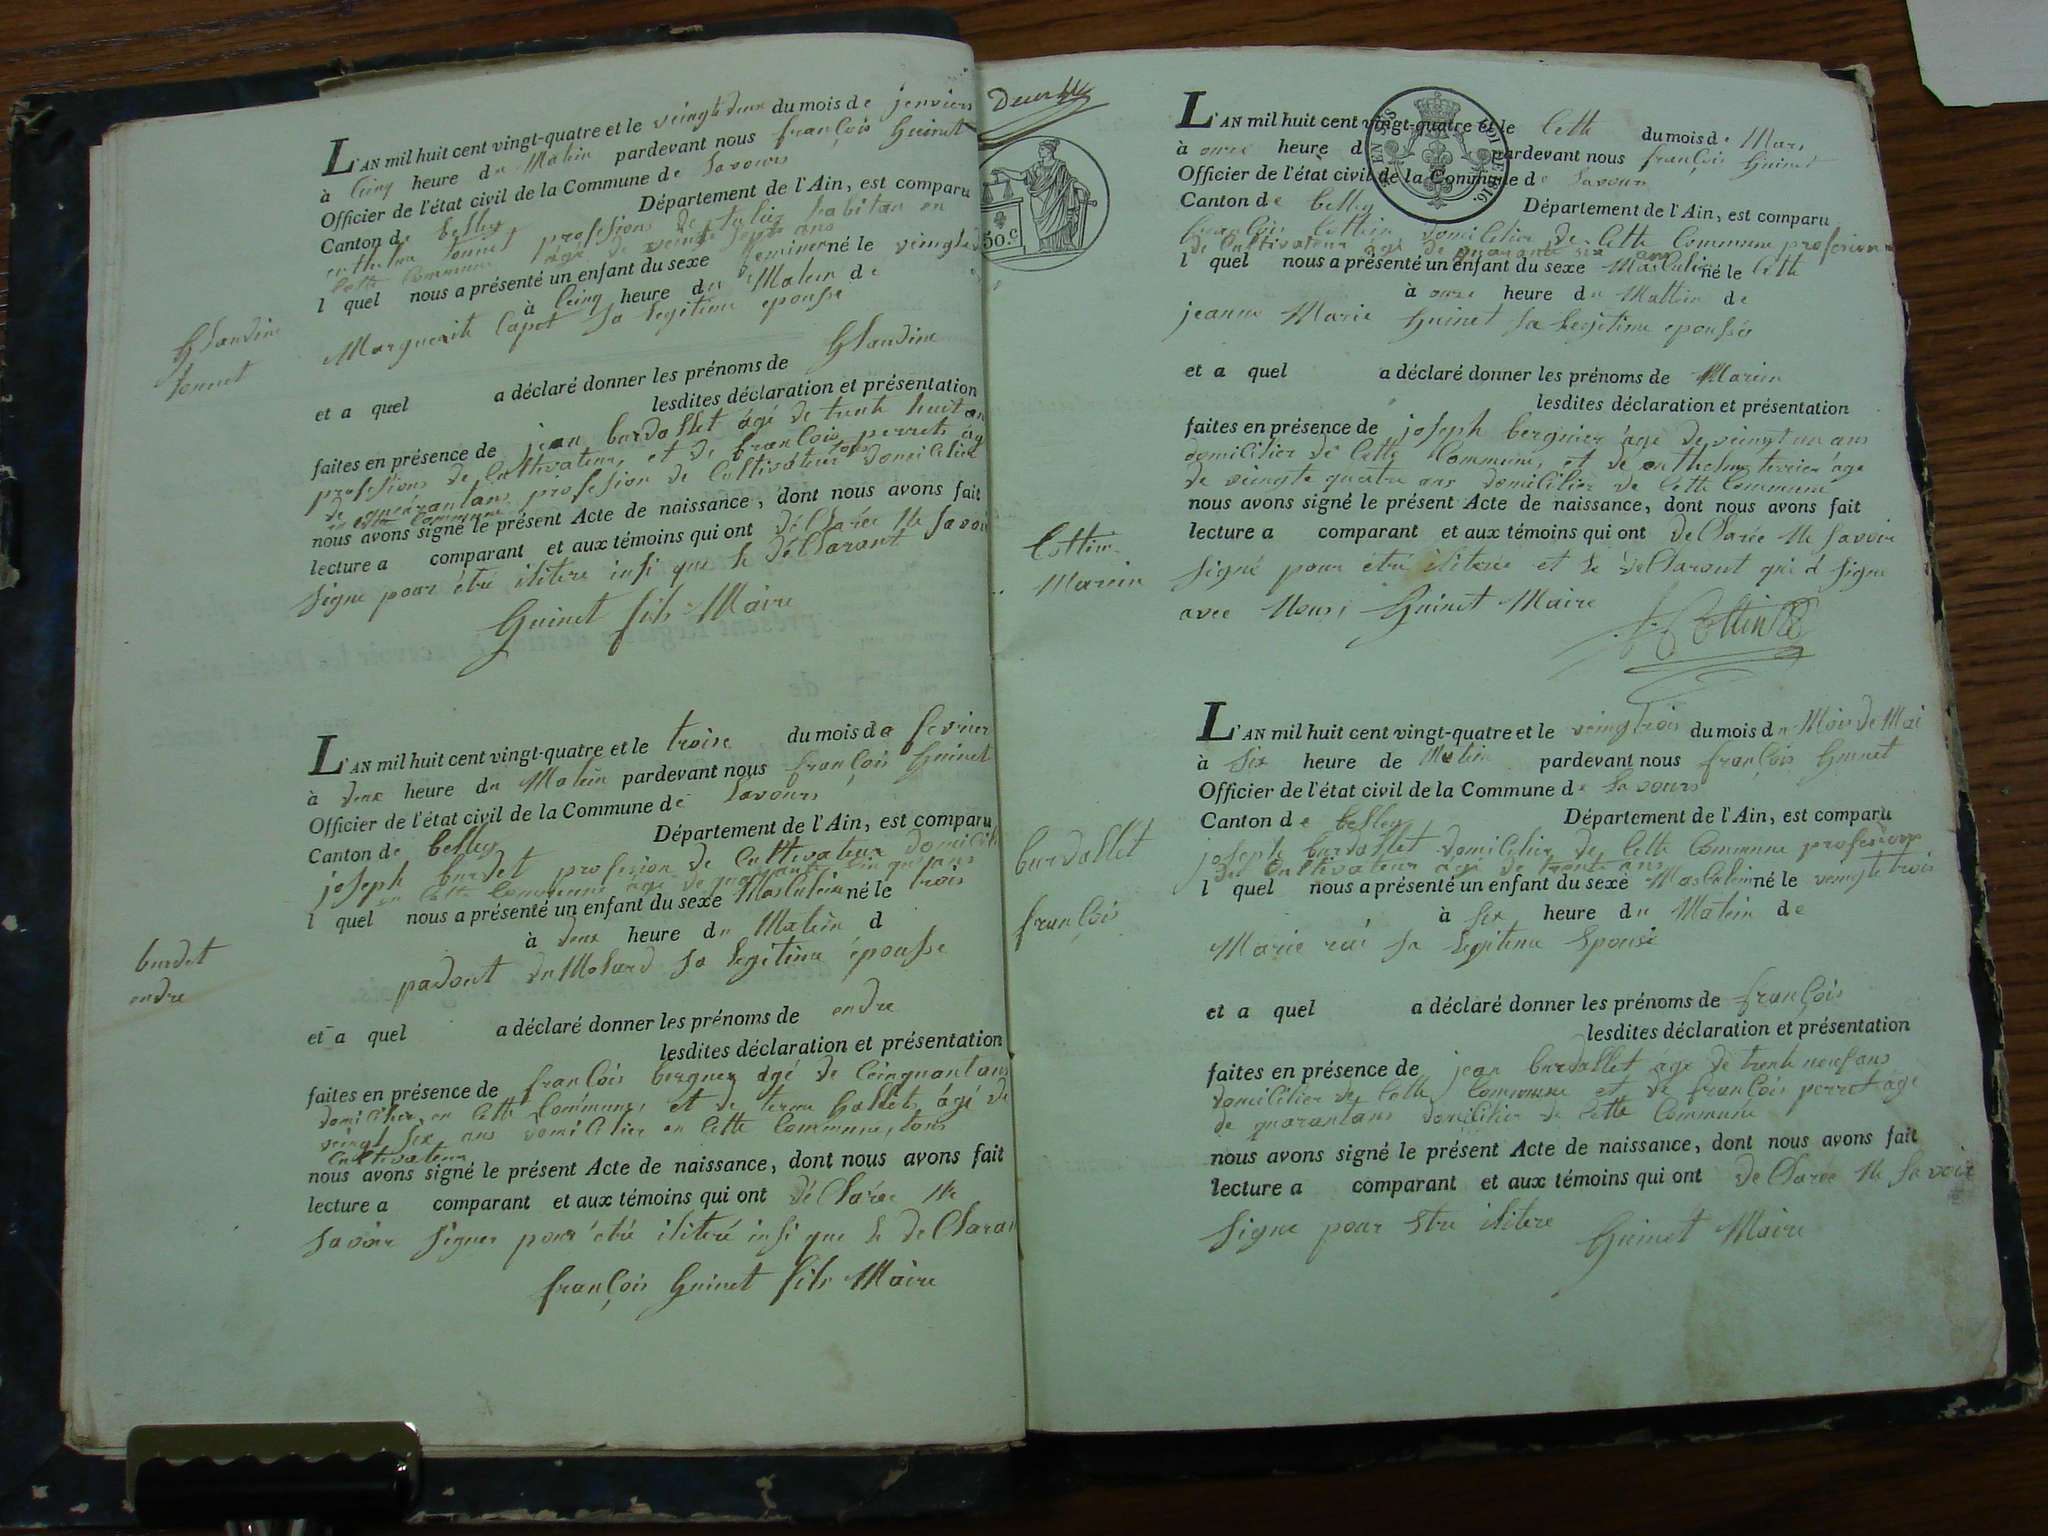 L'AN mil huit cent vingt-quatre et le veingt deux du mois de jenviers
à Cinq heure du Matin pardevant nous françois Guinet
Officier de l'état civil de la Commune de Savours
Canton de belley Département de l'Ain, est comparu
profesions de habitan en
Cette Commune age de veingt sept ans
l quel nous a présenté un enfant du sexe feminer né le veingt d
à Cinq heure du Matein de
Marguerite Capot sa legitime epousse
Glaudine
et a quel a déclaré donner les prénoms de Glaudine
lesdites déclaration et présentation
faites en présence de jean burdallet âgé de trente huit an
profesions de Cultivateur, et de françois perret âg
de quarantans profesion de Cultivateur tous domicilier
en cette Commune
nous avons signé le présent Acte de naissance, dont nous avons fait
lecture a comparant et aux témoins qui ont déClarée Ne Savoir
signe pour étré ilitere insi que le déClarant
Guinet fils Maire
L'AN mil huit cent vingt-quatre et le troise du mois de fevrier
à deux heure du Matein pardevant nous françois Guinet
Officier de l'état civil de la Commune de Savours
Canton de belley Département de l'Ain, est comparu
joseph burdet profesion de Cultivateur domicili
en Cette Commune âgé de quarante sinq ans
l quel nous a présenté un enfant du sexe Masculein né le trois
à deux heure du Matein d
du Molard sa legitime épousse
burdet
endre
et a quel a déclaré donner les prénoms de endre
lesdites déclaration et présentation
faites en présence de françois bergner âgé de Ceinquantans
domicilier en Cette Commune, et de terme Gallet, âgé de
veingt six ans domicilier en Cette Commune, tous
Cultivateur
nous avons signé le présent Acte de naissance, dont nous avons fait
lecture a comparant et aux témoins qui ont déClarée Ne
Savoir signer pour étré ilitéré insi que le deClaran
françois Guinet fils Maire
50.c
L'AN mil huit cent vingt-quatre et le Cette du mois de Mars
à onze heure d pardevant nous françois Guinet
Officier de l'état civil de la Commune de Savours
Canton de belley Département de l'Ain, est comparu
françois Cottin domicilier de Cette Commune profesion
de Cultivateur âgé de quarante six ans
l quel nous a présenté un enfant du sexe Masculein né le Cette
à onze heure du Mattein de
jeanne Marie Guinet sa legitime epousse
et a quel a déclaré donner les prénoms de Marien
lesdites déclaration et présentation
faites en présence de joseph bergnier âgé de veingt un ans
domicilier de Cette Commune, et de enthelme terrier âgé
de veingte quatre ans domicilier de Cette Commune
nous avons signé le présent Acte de naissance, dont nous avons fait
lecture a comparant et aux témoins qui ont deClarée Ne Savoir
Cottin
Marien
signé pour étré ilitérée et le deClarant qui a signe
avec Nous, Guinet Maire
Cottin
L'AN mil huit cent vingt-quatre et le veingtrois du mois du Mois de Mai
à six heure de Matin pardevant nous françois Guinet
Officier de l'état civil de la Commune de Savours
Canton de belley Département de l'Ain, est comparu
burdallet
françois
joseph burdallet domicilier de Cette Commune profesion
de Cultivateur âgé de trente ans
l quel nous a présenté un enfant du sexe Masculein né le veingte trois
à six heure du Matein de
Marie rai sa legitime Epouse
et a quel a déclaré donner les prénoms de françois
lesdites déclaration et présentation
faites en présence de jean burdallet âgé de trente neuf ans
domicilier de Cette Commune et de françois perret âgé
de quarantans domicilier de Cette Commune
nous avons signé le présent Acte de naissance, dont nous avons fait
lecture a comparant et aux témoins qui ont deClarée Ne Savoir
signe pour Etre ilitere Guinet Maire